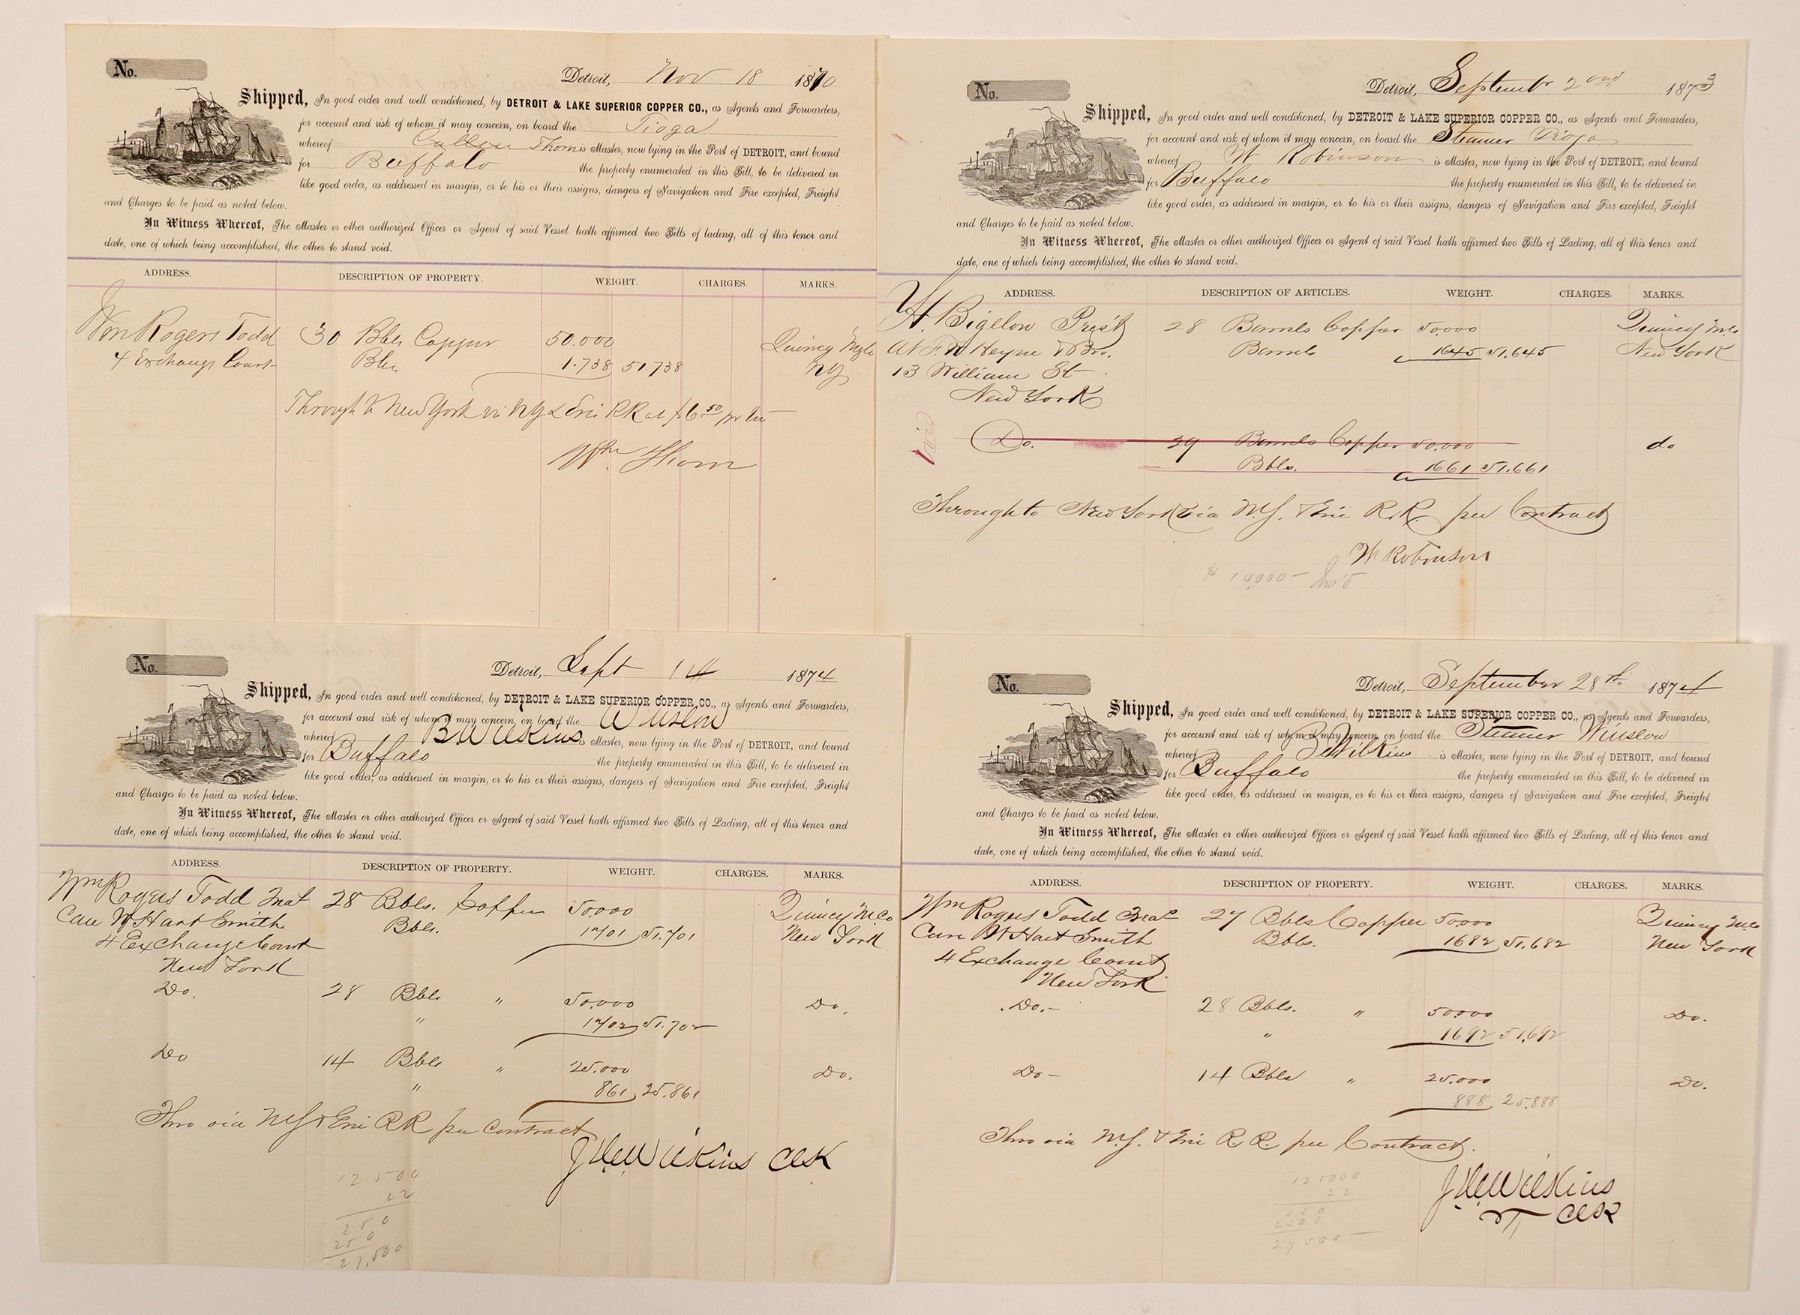 No.
Detroit, Nov 18 1870
Shipped, In good order and well conditioned, by DETROIT & LAKE SUPERIOR COPPER CO., as Agents and Forwarders,
for account and risk of whom it may concern, on board the Tioga
whereof Cullen Thom is Master, now lying in the Port of DETROIT, and bound
for Buffalo the property enumerated in this Bill, to be delivered in
like good order, as addressed in margin, or to his or their assigns, dangers of Navigation and Fire excepted, Freight
and Charges to be paid as noted below.
In Witness Whereof, The Master or other authorized Officer or Agent of said Vessel hath affirmed two Bills of lading, all of this tenor and
date, one of which being accomplished, the other to stand void.
ADDRESS. DESCRIPTION OF PROPERTY. WEIGHT. CHARGES. MARKS.
Wm Rogers Todd 30 Bbls Copper 50.000 Quincy Mg Co
4 Exchange Court Bbls 1.738 51,738 NY
Through to New York via NY & Erie RR at $6.50 per ton
Wm Thom
No.
Detroit, September 2nd 1873
Shipped, In good order and well conditioned, by DETROIT & LAKE SUPERIOR COPPER CO., as Agents and Forwarders,
for account and risk of whom it may concern, on board the Steamer Tioga
whereof W Robinson is Master, now lying in the Port of DETROIT, and bound
for Buffalo the property enumerated in this Bill, to be delivered in
like good order, as addressed in margin, or to his or their assigns, dangers of Navigation and Fire excepted, Freight
and Charges to be paid as noted below.
In Witness Whereof, The Master or other authorized Officer or Agent of said Vessel hath affirmed two Bills of Lading, all of this tenor and
date, one of which being accomplished, the other to stand void.
ADDRESS. DESCRIPTION OF ARTICLES. WEIGHT. CHARGES. MARKS.
H. Bigelow Pres't 28 Barrels Copper 50000 Quincy M. Co
at F. W Heyne & Bro. Barrels 1645 51.645 New York
13 William St
New York
Void
Do. 29 Barrels Copper 50,000 do
Bbls. 1661 51.661
Through to New York via N.Y. & Erie R.R. per Contract
W Robinson
$ 14,000-
No.
Detroit, Sept 14 1874
Shipped, In good order and well conditioned, by DETROIT & LAKE SUPERIOR COPPER CO., as Agents and Forwarders,
for account and risk of whom it may concern, on board the Winslow
whereof B. Wilkins is Master, now lying in the Port of DETROIT, and bound
for Buffalo the property enumerated in this Bill, to be delivered in
like good order, as addressed in margin, or to his or their assigns, dangers of Navigation and Fire excepted, Freight
and Charges to be paid as noted below.
In Witness Whereof, The Master or other authorized Officer or Agent of said Vessel hath affirmed two Bills of Lading, all of this tenor and
date, one of which being accomplished, the other to stand void.
ADDRESS. DESCRIPTION OF PROPERTY. WEIGHT. CHARGES. MARKS.
Wm Rogers Todd 28 Bbls. Copper 50000 Quincy M. Co
Care W Hart Smith Bbls. 1701 51.701 New York
4 Exchange Court
New York
Do. 28 Bbls " 50,000 Do.
" 1702 51.702
Do 14 Bbls " 25.000 Do.
" 861 25.861
Thro via NY & Erie RR per contract
J. W. Wilkins Clk
12500
22
250
250
27,500
No.
Detroit, September 28th 1874
Shipped, In good order and well conditioned, by DETROIT & LAKE SUPERIOR COPPER CO., as Agents and Forwarders,
for account and risk of whom it may concern, on board the Steamer Winslow
whereof Wilkins is Master, now lying in the Port of DETROIT, and bound
for Buffalo the property enumerated in this Bill, to be delivered in
like good order, as addressed in margin, or to his or their assigns, dangers of Navigation and Fire excepted, Freight
and Charges to be paid as noted below.
In Witness Whereof, The Master or other authorized Officer or Agent of said Vessel hath affirmed two Bills of Lading, all of this tenor and
date, one of which being accomplished, the other to stand void.
ADDRESS. DESCRIPTION OF PROPERTY. WEIGHT. CHARGES. MARKS.
Wm Rogers Todd 27 Bbls Copper 50000 Quincy M. Co
Care W Hart Smith Bbls. 1682 51,682 New York
4 Exchange Court
New York
Do.- 28 Bbls. " 50000 Do.
" 1692 51,692
Do- 14 Bbls " 25,000 Do.
" 888 25.888
Thro via N.Y. & Erie R R. per Contract.
J. W. Wilkins
Clk
125000
22
250
2500
27500